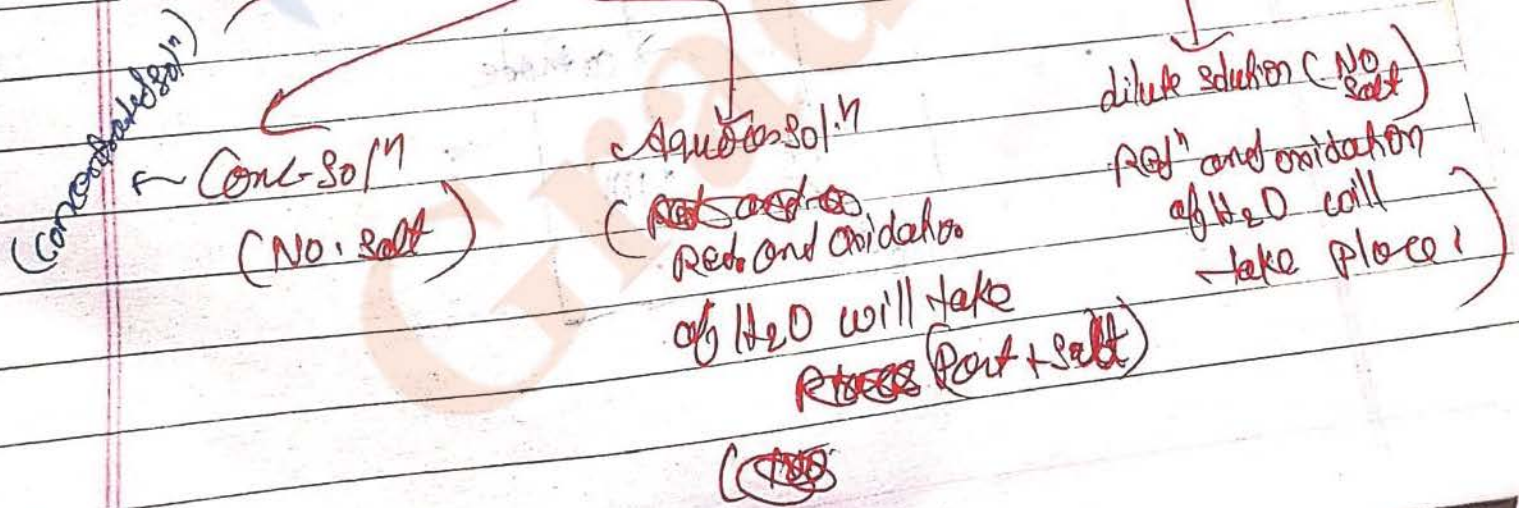 (Concentrated solⁿ)
Conc-Solⁿ
(NO. salt)
Aqueous Sol.ⁿ
(
Red. and Oxidation
of H2O will take
(Part + salt)
dilute solution (NO
Salt)
Redⁿ and oxidation
of H2O will
take place.)
Gra